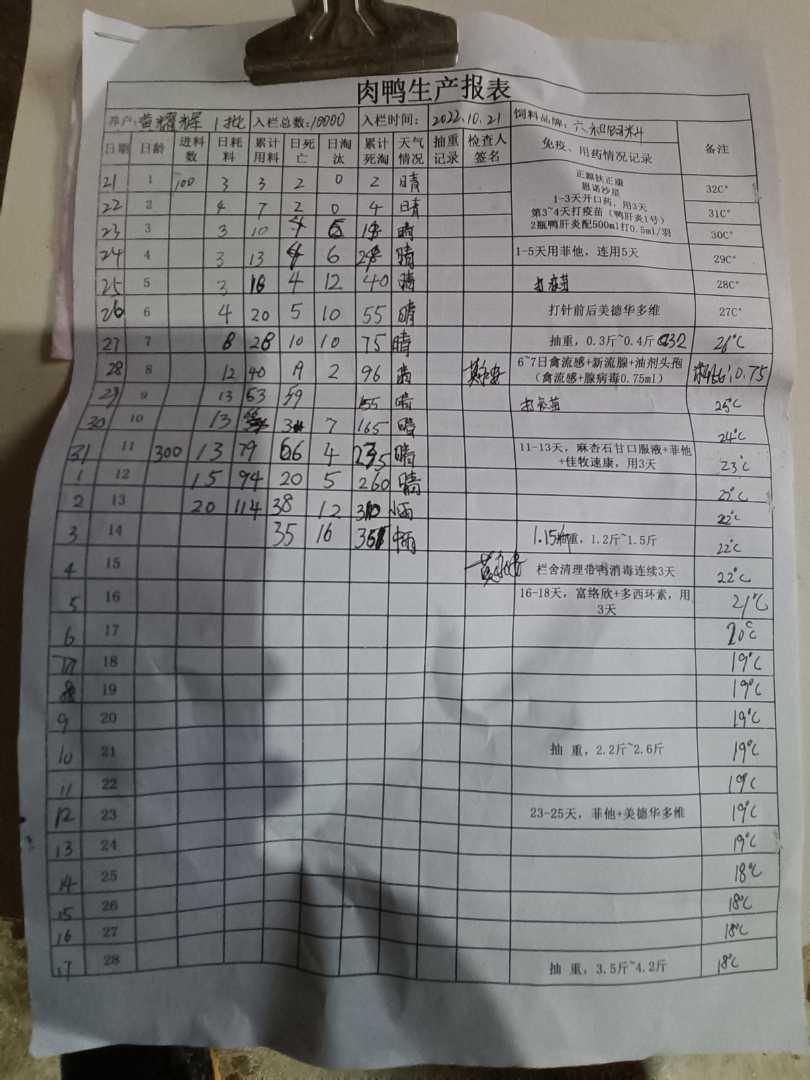 肉鸭生产报表
养户:黄耀辉 1批 入栏总数:10000 入栏时间: 2022.10.21 饲料品牌:六和饲料
日期 日龄 进料数 日耗料 累计用料 日死亡 日淘汰 累计死淘 天气情况 抽重记录 检查人签名 免疫、用药情况记录 备注
21 1 100 3 3 2 0 2 晴 正源扶正康 恩诺沙星 32C°
22 2 4 7 2 0 4 晴 1-3天开口药,用3天 31C°
23 3 3 10 4 晴 第3~4天打疫苗(鸭肝炎1号) 2瓶鸭肝炎配500ml打0.5ml/羽 30C°
24 4 3 13 4 6 晴 1-5天用菲他,连用5天 29C°
25 5 3 16 4 12 40 晴 打疫苗 28C°
26 6 4 20 5 10 55 晴 打针前后美德华多维 27C°
27 7 8 28 10 10 75 晴 抽重,0.3斤~0.4斤 26°C
28 8 12 40 2 96 6~7日禽流感+新流腺+油剂头孢(禽流感+腺病毒0.75ml) 0.75
29 9 13 53 59 155 晴 打疫苗 25°C
30 10 13 7 165 晴 24°C
31 11 300 13 79 66 4 235 晴 11-13天,麻杏石甘口服液+菲他+佳牧速康,用3天 23°C
1 12 15 94 20 5 260 晴 22°C
2 13 20 114 38 12 310 22°C
3 14 35 16 361 1.15 重,1.2斤~1.5斤 22°C
4 15 栏舍清理带鸭消毒连续3天 22°C
5 16 16-18天,富络欣+多西环素,用3天 21°C
6 17 20°C
7 18 19°C
8 19 19°C
9 20 19°C
10 21 抽 重,2.2斤~2.6斤 19°C
11 22 19°C
12 23 23-25天,菲他+美德华多维 19°C
13 24 19°C
14 25 18°C
15 26 18°C
16 27 18°C
17 28 抽 重,3.5斤~4.2斤 18°C